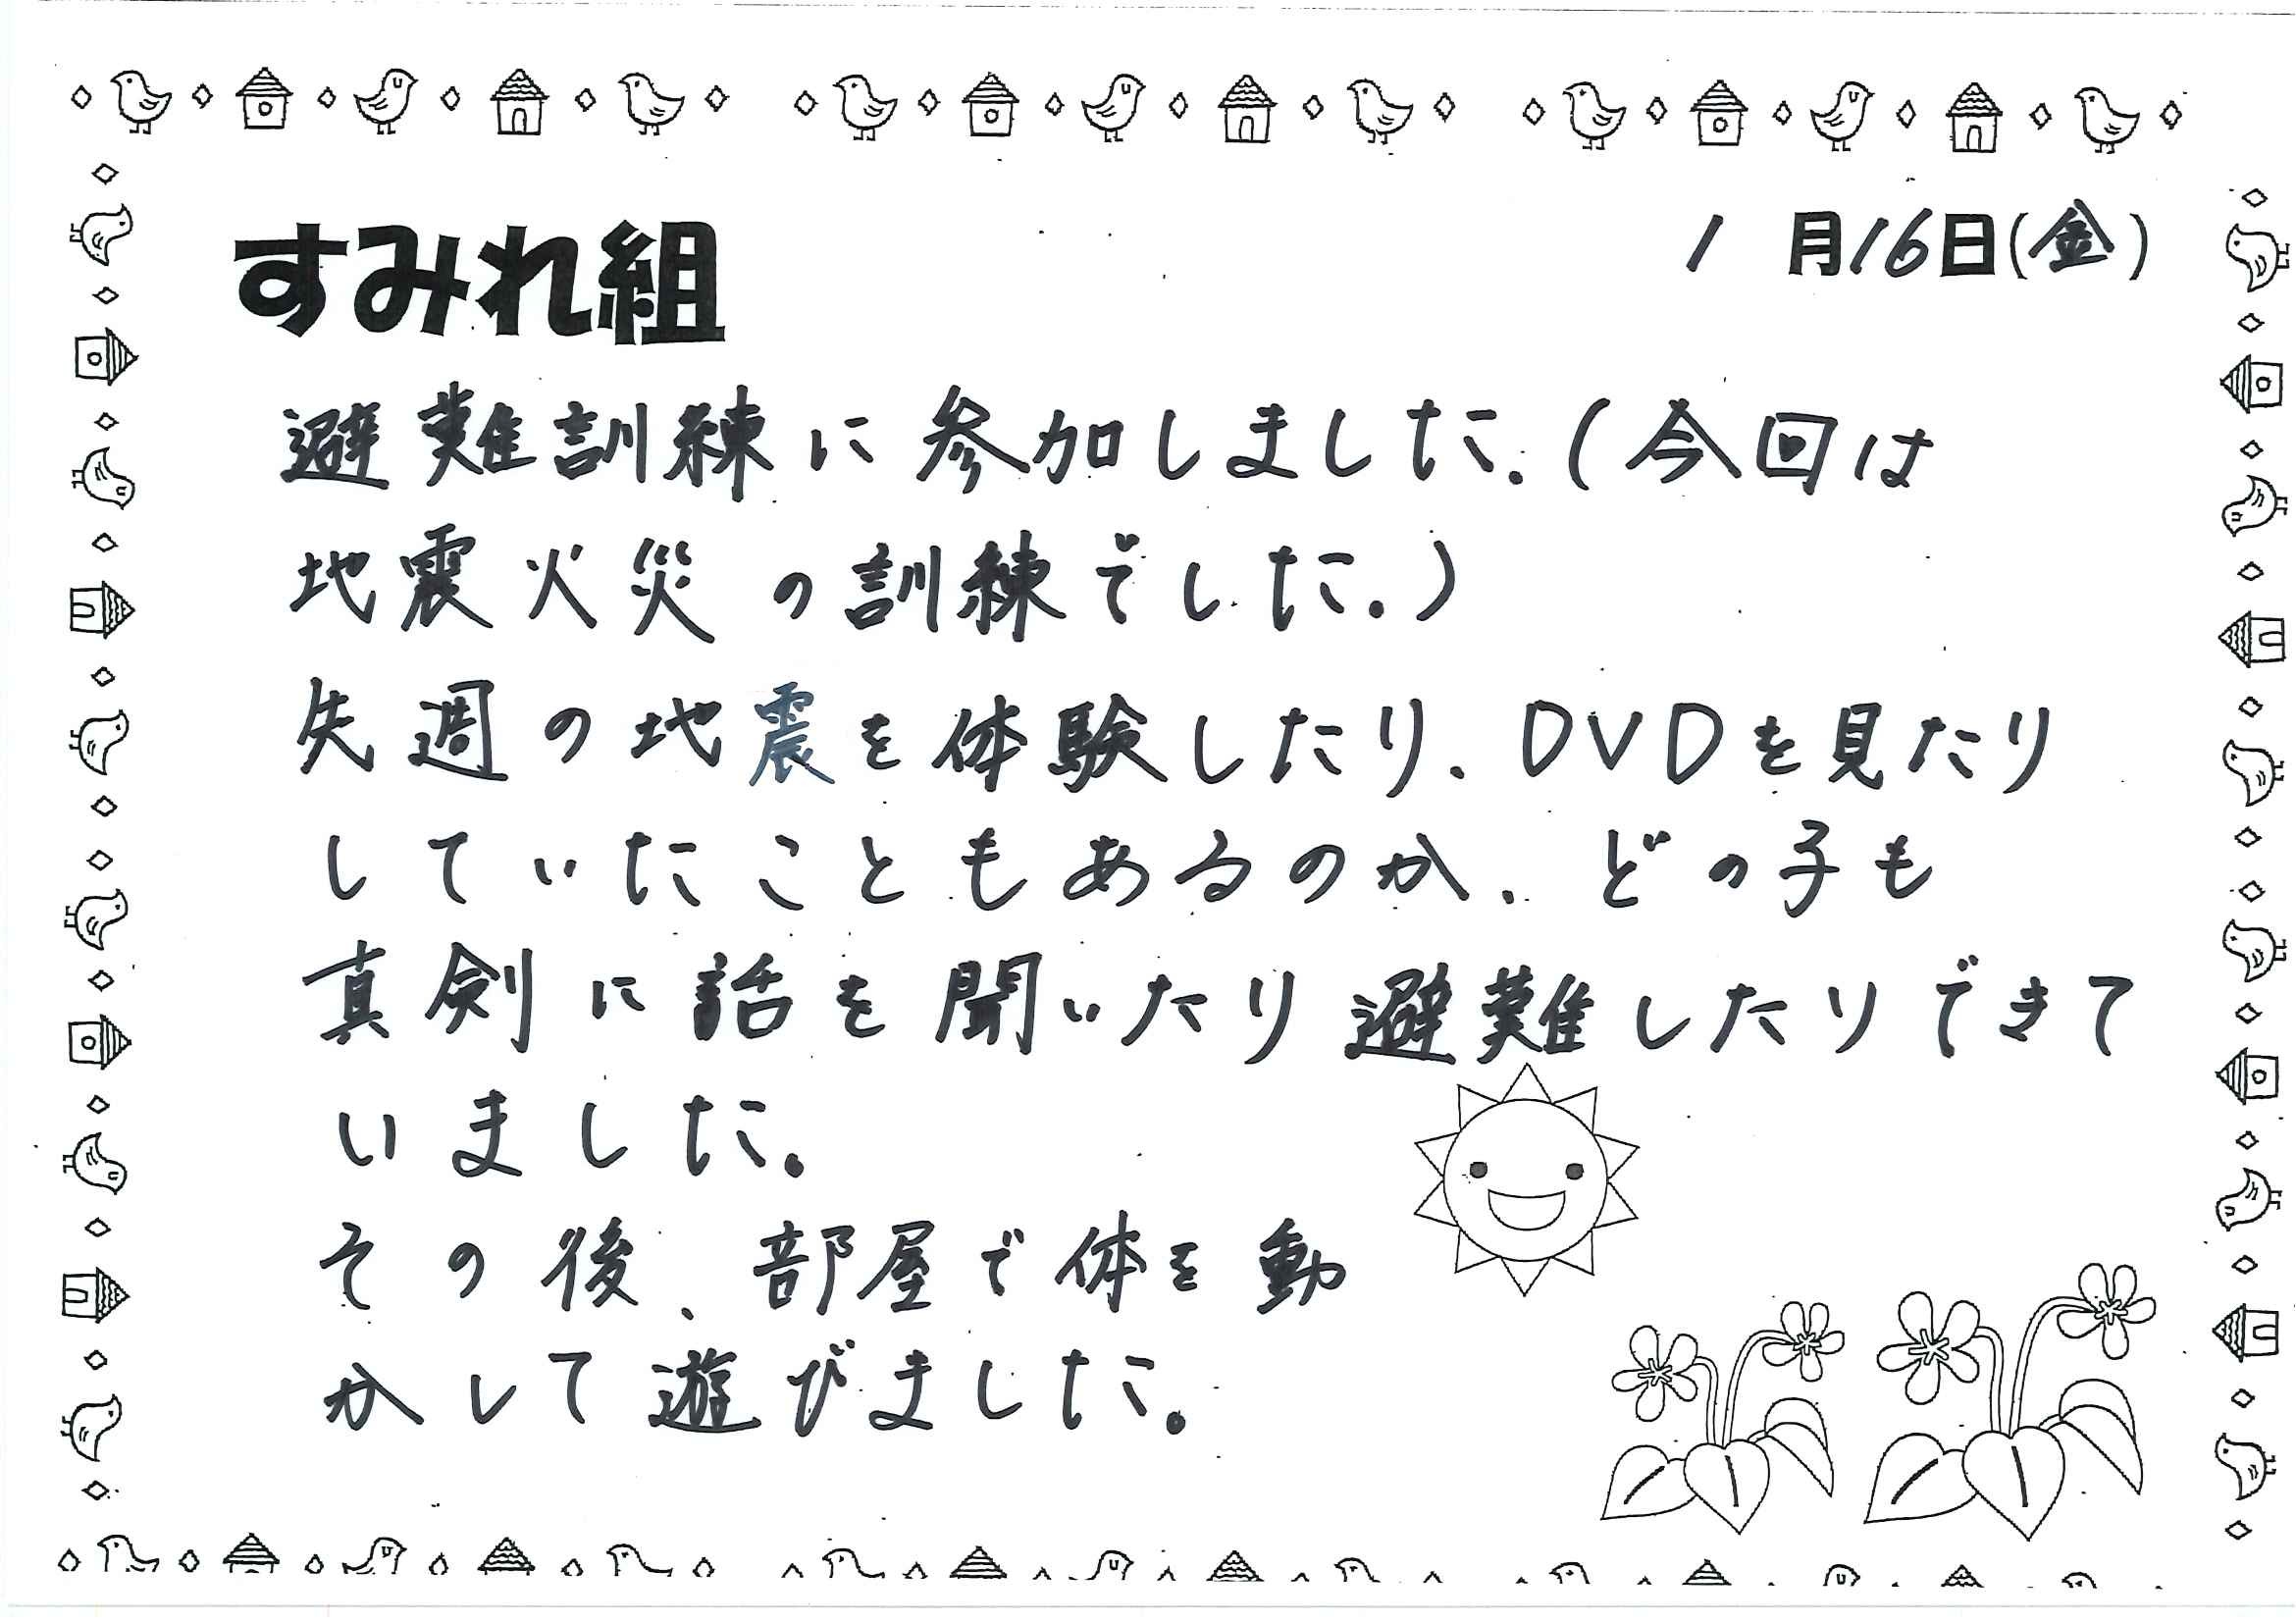 すみれ組
1月16日(金)
避難訓練に参加しました。(今回は
地震火災の訓練でした。)
先週の地震を体験したり、DVDを見たり
していたこともあるのか、どの子も
真剣に話を聞いたり避難したりできて
いました。
その後、部屋で体を動
かして遊びました。